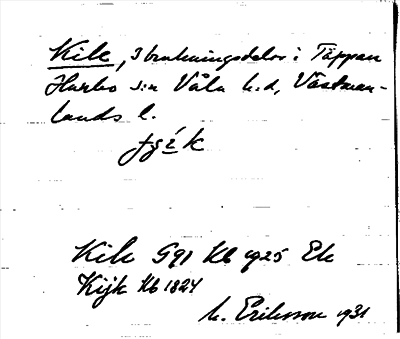 Kilk, 3 brukningsdelar i Täppan
Harbo s:n Våla h.d, Västman-
lands l.
Kilk G91 Kb 1925 Ek
Kijk Hb 1824
M. Eriksson 1931